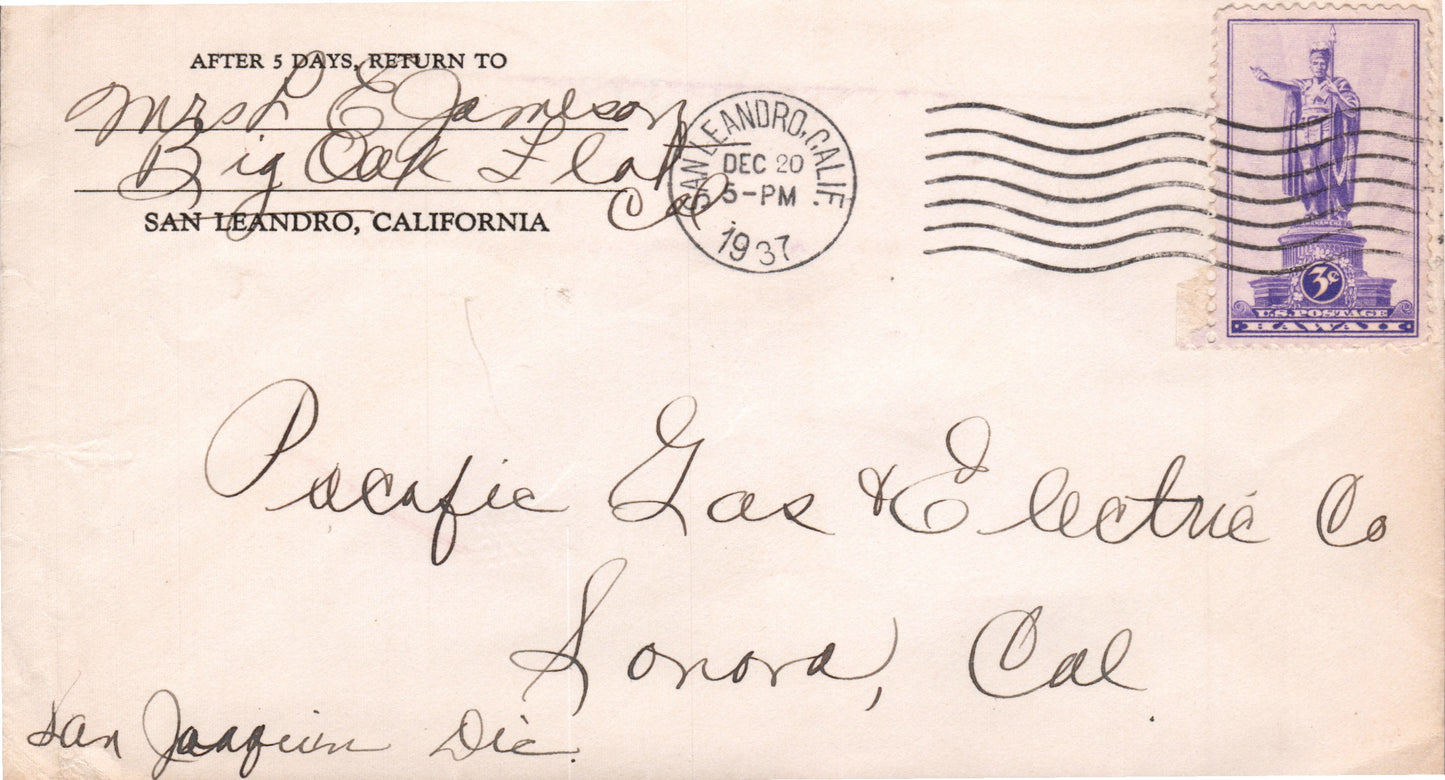 AFTER 5 DAYS, RETURN TO
Mrs L E Jameson
Big Oak Flat
Cal
SAN LEANDRO, CALIFORNIA
SAN LEANDRO, CALIF.
DEC 20
5-PM
1937
3c
U.S. POSTAGE
HAWAII
Pacific Gas & Electric Co
Sonora, Cal
San Joaquin Div.